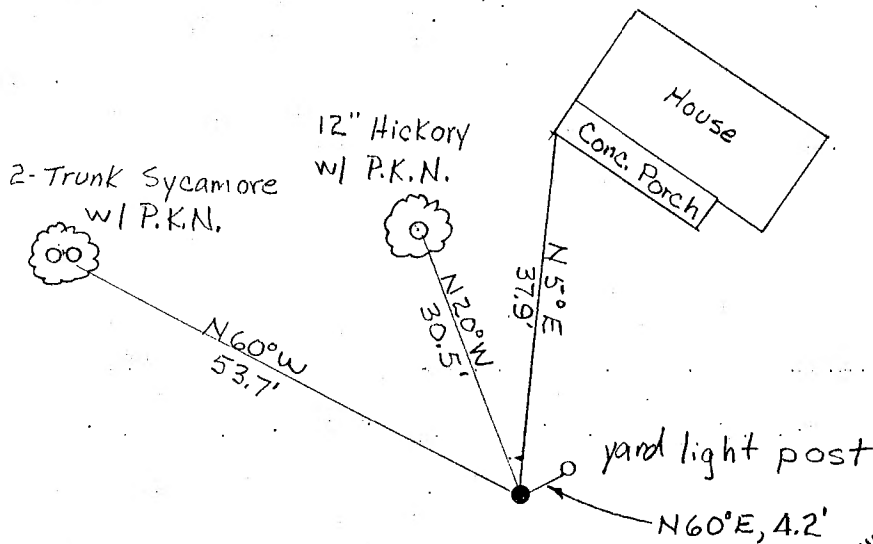 House
Conc. Porch
12" Hickory
w/ P.K.N.
2-Trunk Sycamore
w/ P.K.N.
N 5° E
37.9'
N20°W
30.5'
N60°W
53.7'
yard light post
N60°E, 4.2'